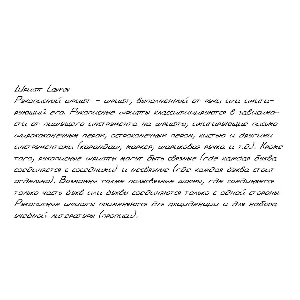 Шрифт Lavrov
Рукописный шрифт – шрифт, выполненный от руки или имити-
рующий его. Рукописные шрифты классифицируются в зависимо-
сти от пишущего инструмента на шрифты, имитирующие письмо
ширококонечным пером, остроконечным пером, кистью и другими
инструментами (карандаш, маркер, шариковая ручка и т.д.). Кроме
того, рукописные шрифты могут быть связные (где каждая буква
соединяется с соседними) и несвязные (где каждая буква стоит
отдельно). Возможны также полусвязные шрифты, где соединяется
только часть букв или буквы соединяются только с одной стороны.
Рукописные шрифты применяются для акциденции и для набора
учебной литературы (прописи).